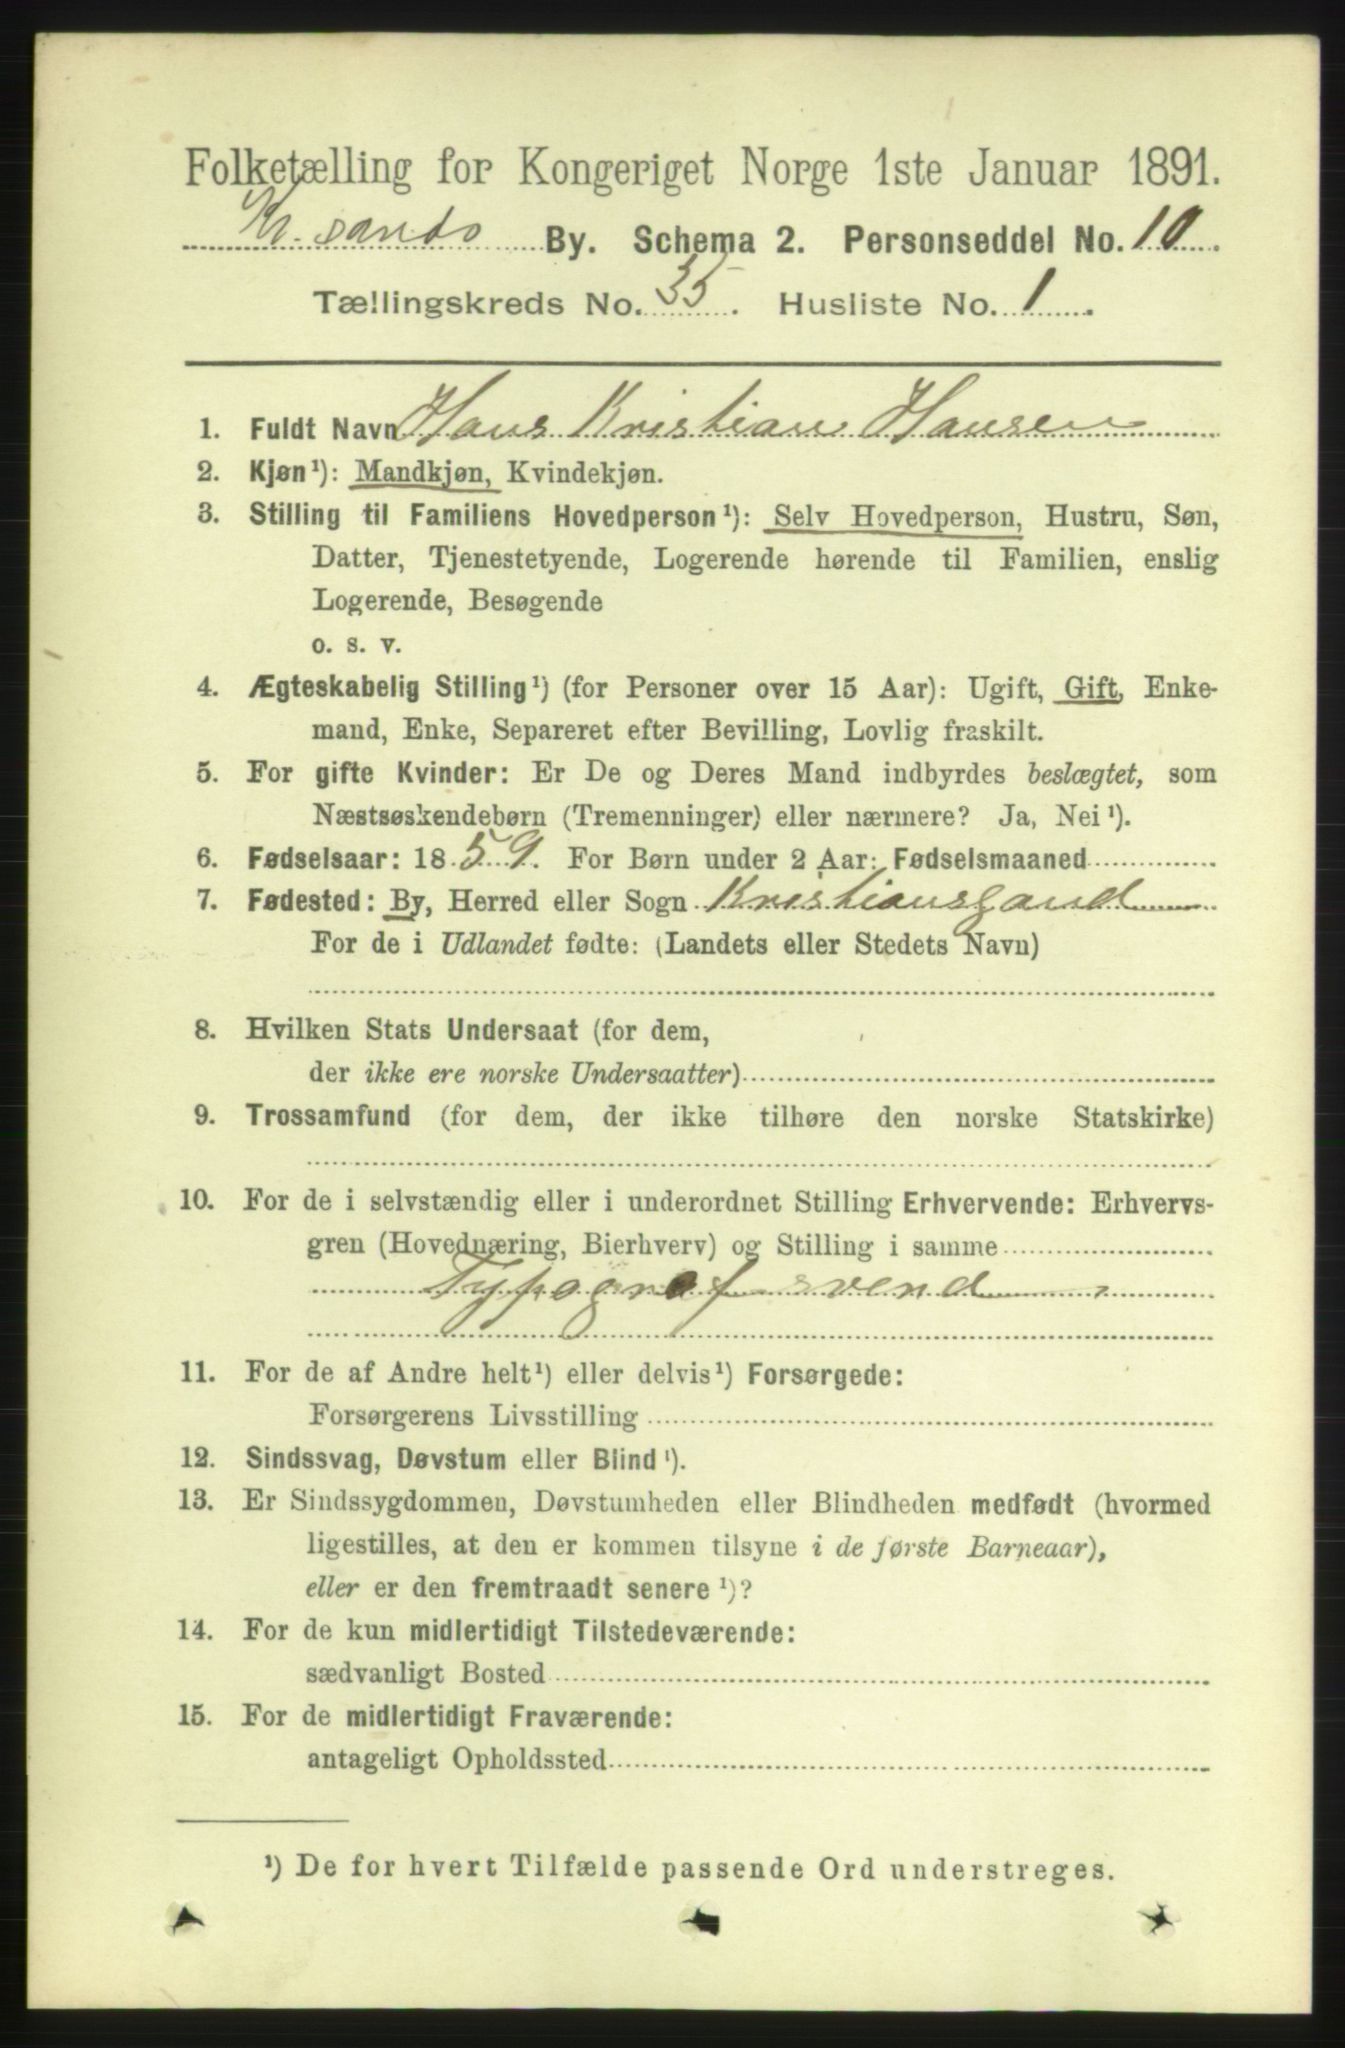 Folketælling for Kongeriget Norge 1ste Januar 1891.
Kr. sands By. Schema 2. Personseddel No. 10.
Tællingskreds No. 35. Husliste No. 1.
1. Fuldt Navn Hans Kristian Hansen
2. Kjøn¹): Mandkjøn, Kvindekjøn.
3. Stilling til Familiens Hovedperson¹): Selv Hovedperson, Hustru, Søn,
Datter, Tjenestetyende, Logerende hørende til Familien, enslig
Logerende, Besøgende
o. s. v.
4. Ægteskabelig Stilling¹) (for Personer over 15 Aar): Ugift, Gift, Enke-
mand, Enke, Separeret efter Bevilling, Lovlig fraskilt.
5. For gifte Kvinder: Er De og Deres Mand indbyrdes beslægtet, som
Næstsøskendebørn (Tremenninger) eller nærmere? Ja, Nei¹).
6. Fødselsaar: 1859. For Børn under 2 Aar: Fødselsmaaned
7. Fødested: By, Herred eller Sogn Kristianssand
For de i Udlandet fødte: (Landets eller Stedets Navn)
8. Hvilken Stats Undersaat (for dem,
der ikke ere norske Undersaatter)
9. Trossamfund (for dem, der ikke tilhøre den norske Statskirke)
10. For de i selvstændig eller i underordnet Stilling Erhvervende: Erhvervs-
gren (Hovednæring, Bierhverv) og Stilling i samme
Typografsvend
11. For de af Andre helt¹) eller delvis¹) Forsørgede:
Forsørgerens Livsstilling
12. Sindssvag, Døvstum eller Blind¹).
13. Er Sindssygdommen, Døvstumheden eller Blindheden medfødt (hvormed
ligestilles, at den er kommen tilsyne i de første Barneaar),
eller er den fremtraadt senere¹)?
14. For de kun midlertidigt Tilstedeværende:
sædvanligt Bosted
15. For de midlertidigt Fraværende:
antageligt Opholdssted
¹) De for hvert Tilfælde passende Ord understreges.